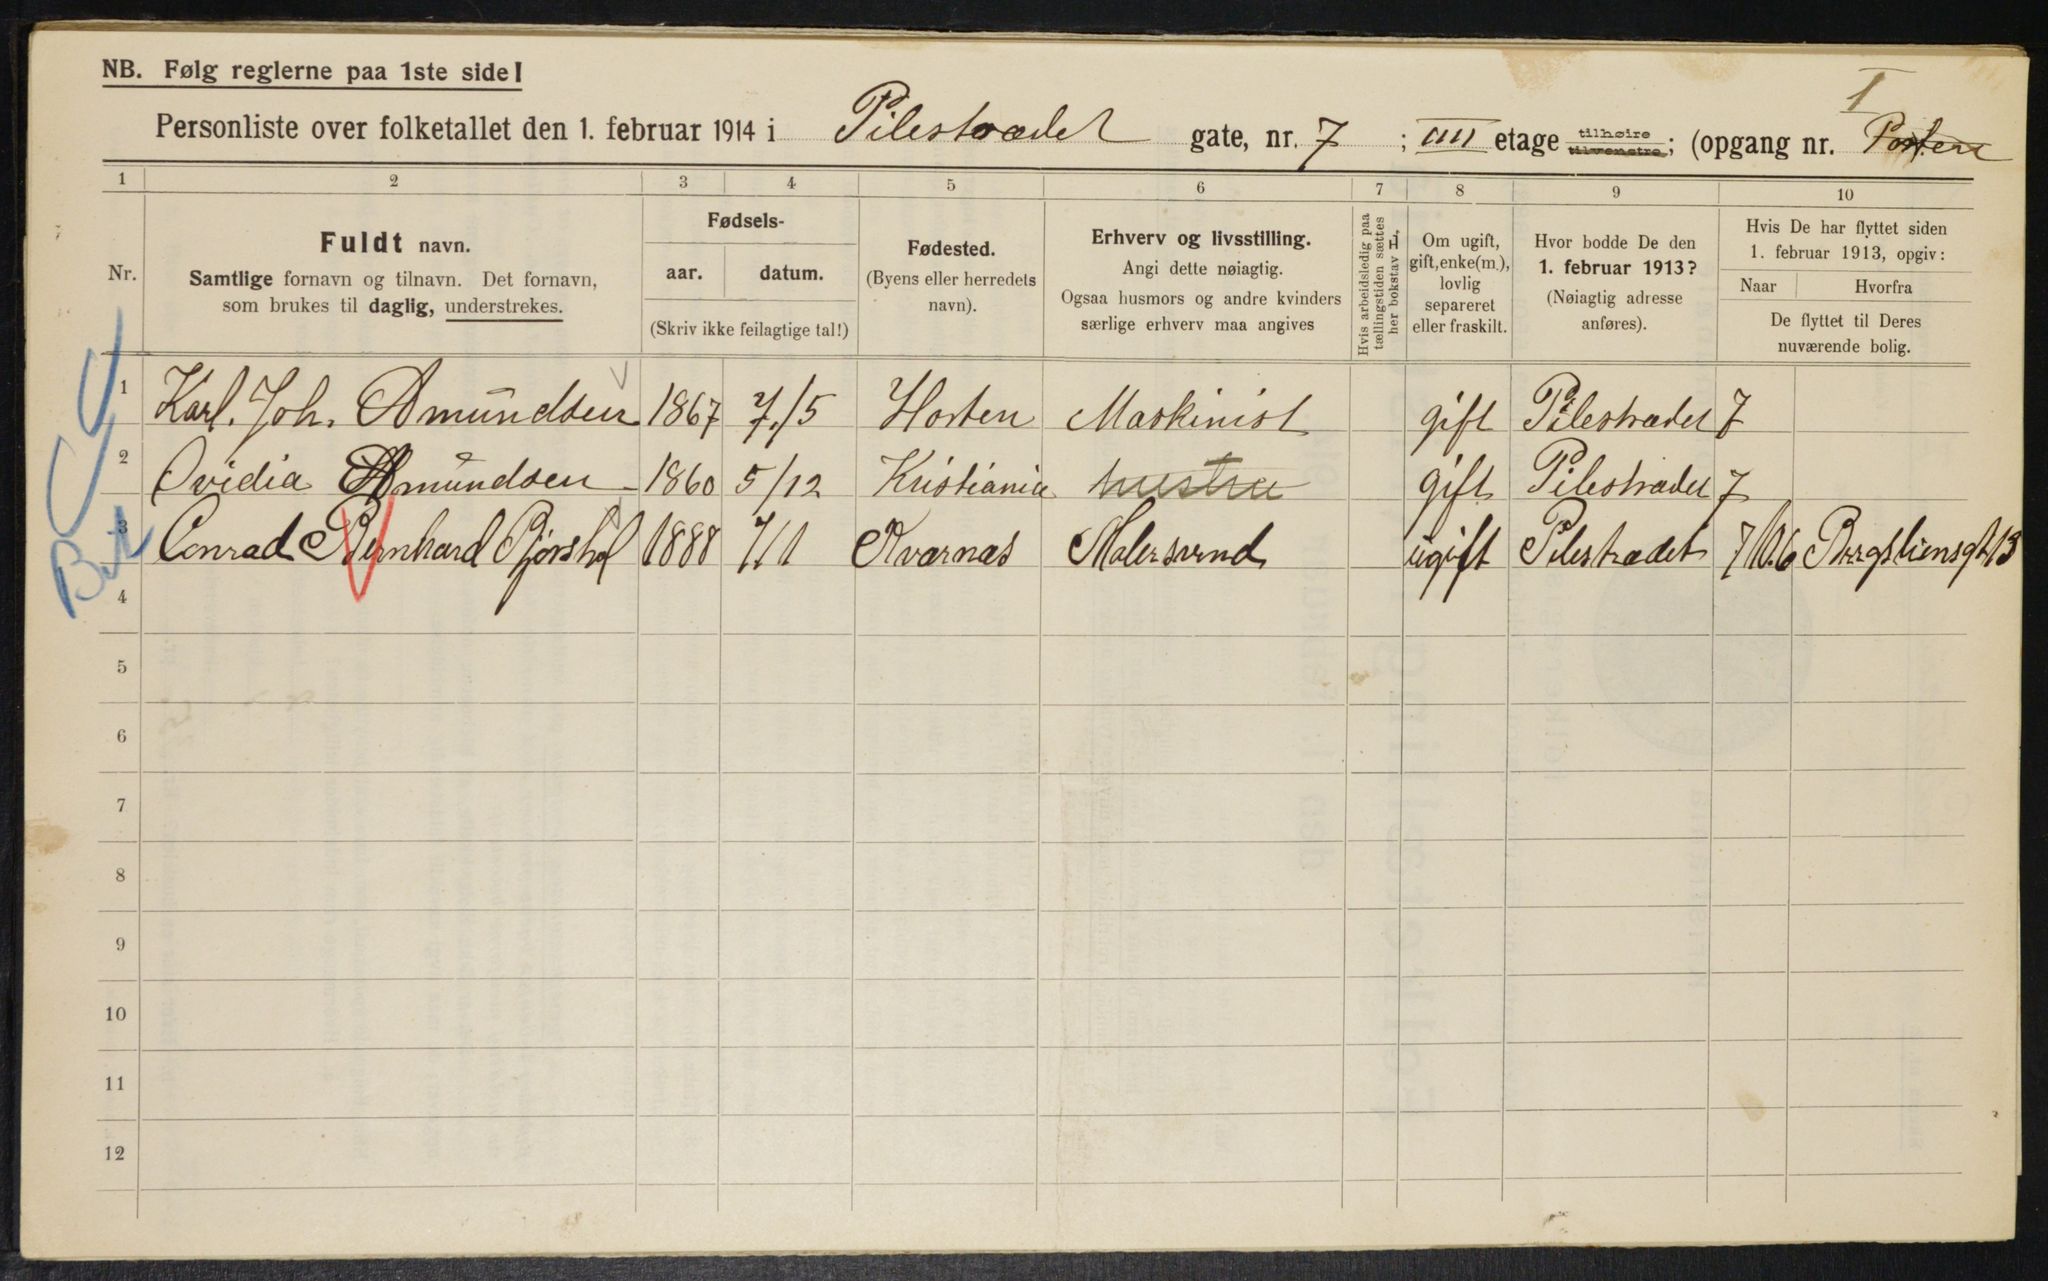 NB. Følg reglerne paa 1ste side!
I
Personliste over folketallet den 1. februar 1914 i Pilestrædet gate, nr. 7 ; IIII etage tilhøire tilvenstre; (opgang nr. Porten
1 2 3 4 5 6 7 8 9 10
Nr.
Fuldt navn.
Samtlige fornavn og tilnavn. Det fornavn,
som brukes til daglig, understrekes.
Fødsels-
aar. datum.
(Skriv ikke feilagtige tal!)
Fødested.
(Byens eller herredets
navn).
Erhverv og livsstilling.
Angi dette nøiagtig.
Ogsaa husmors og andre kvinders
særlige erhverv maa angives
Hvis arbeidsledig paa
tællingstiden sættes
her bokstav H.
Om ugift,
gift, enke(m.),
lovlig
separeret
eller fraskilt.
Hvor bodde De den
1. februar 1913?
(Nøiagtig adresse
anføres).
Hvis De har flyttet siden
1. februar 1913, opgiv:
Naar Hvorfra
De flyttet til Deres
nuværende bolig.
1 Karl. Joh. Amundsen 1867 7/5 Horten Maskinist gift Pilestrædet 7
2 Ovidia Amundsen 1860 5/12 Kristiania hustru gift Pilestrædet 7
3 Conrad Bernhard Bjørshol 1888 7/1 Kværnæs Malersvend ugift Pilestrædet 7 10.6 Bergsliensgt 13
4
5
6
7
8
9
10
11
12